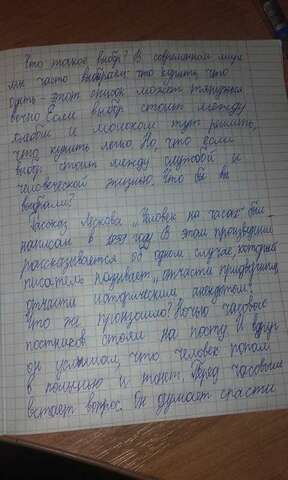 Что такое выбор? В современном мире
мы часто выбираем что купить, что
одеть - этот список может тянуться
вечно. Если выбор стоит между
хлебом и молоком тут решить,
что купить легко. Но, что если
выбор стоит между службой и
человеческой жизнью. Что бы вы
выбрали?
Рассказ Лескова „Человек на часах" был
написан в 1887 году. В этом произведении
рассказывается об одном случае, который
писатель называет „отчасти придворным,
отчасти историческим анекдотом".
Что же произошло? Ночью часовой
постников стоял на посту и вдруг
он услышал, что человек попал
в полынью и тонет. Перед часовым
встает вопрос. Он думает спасти